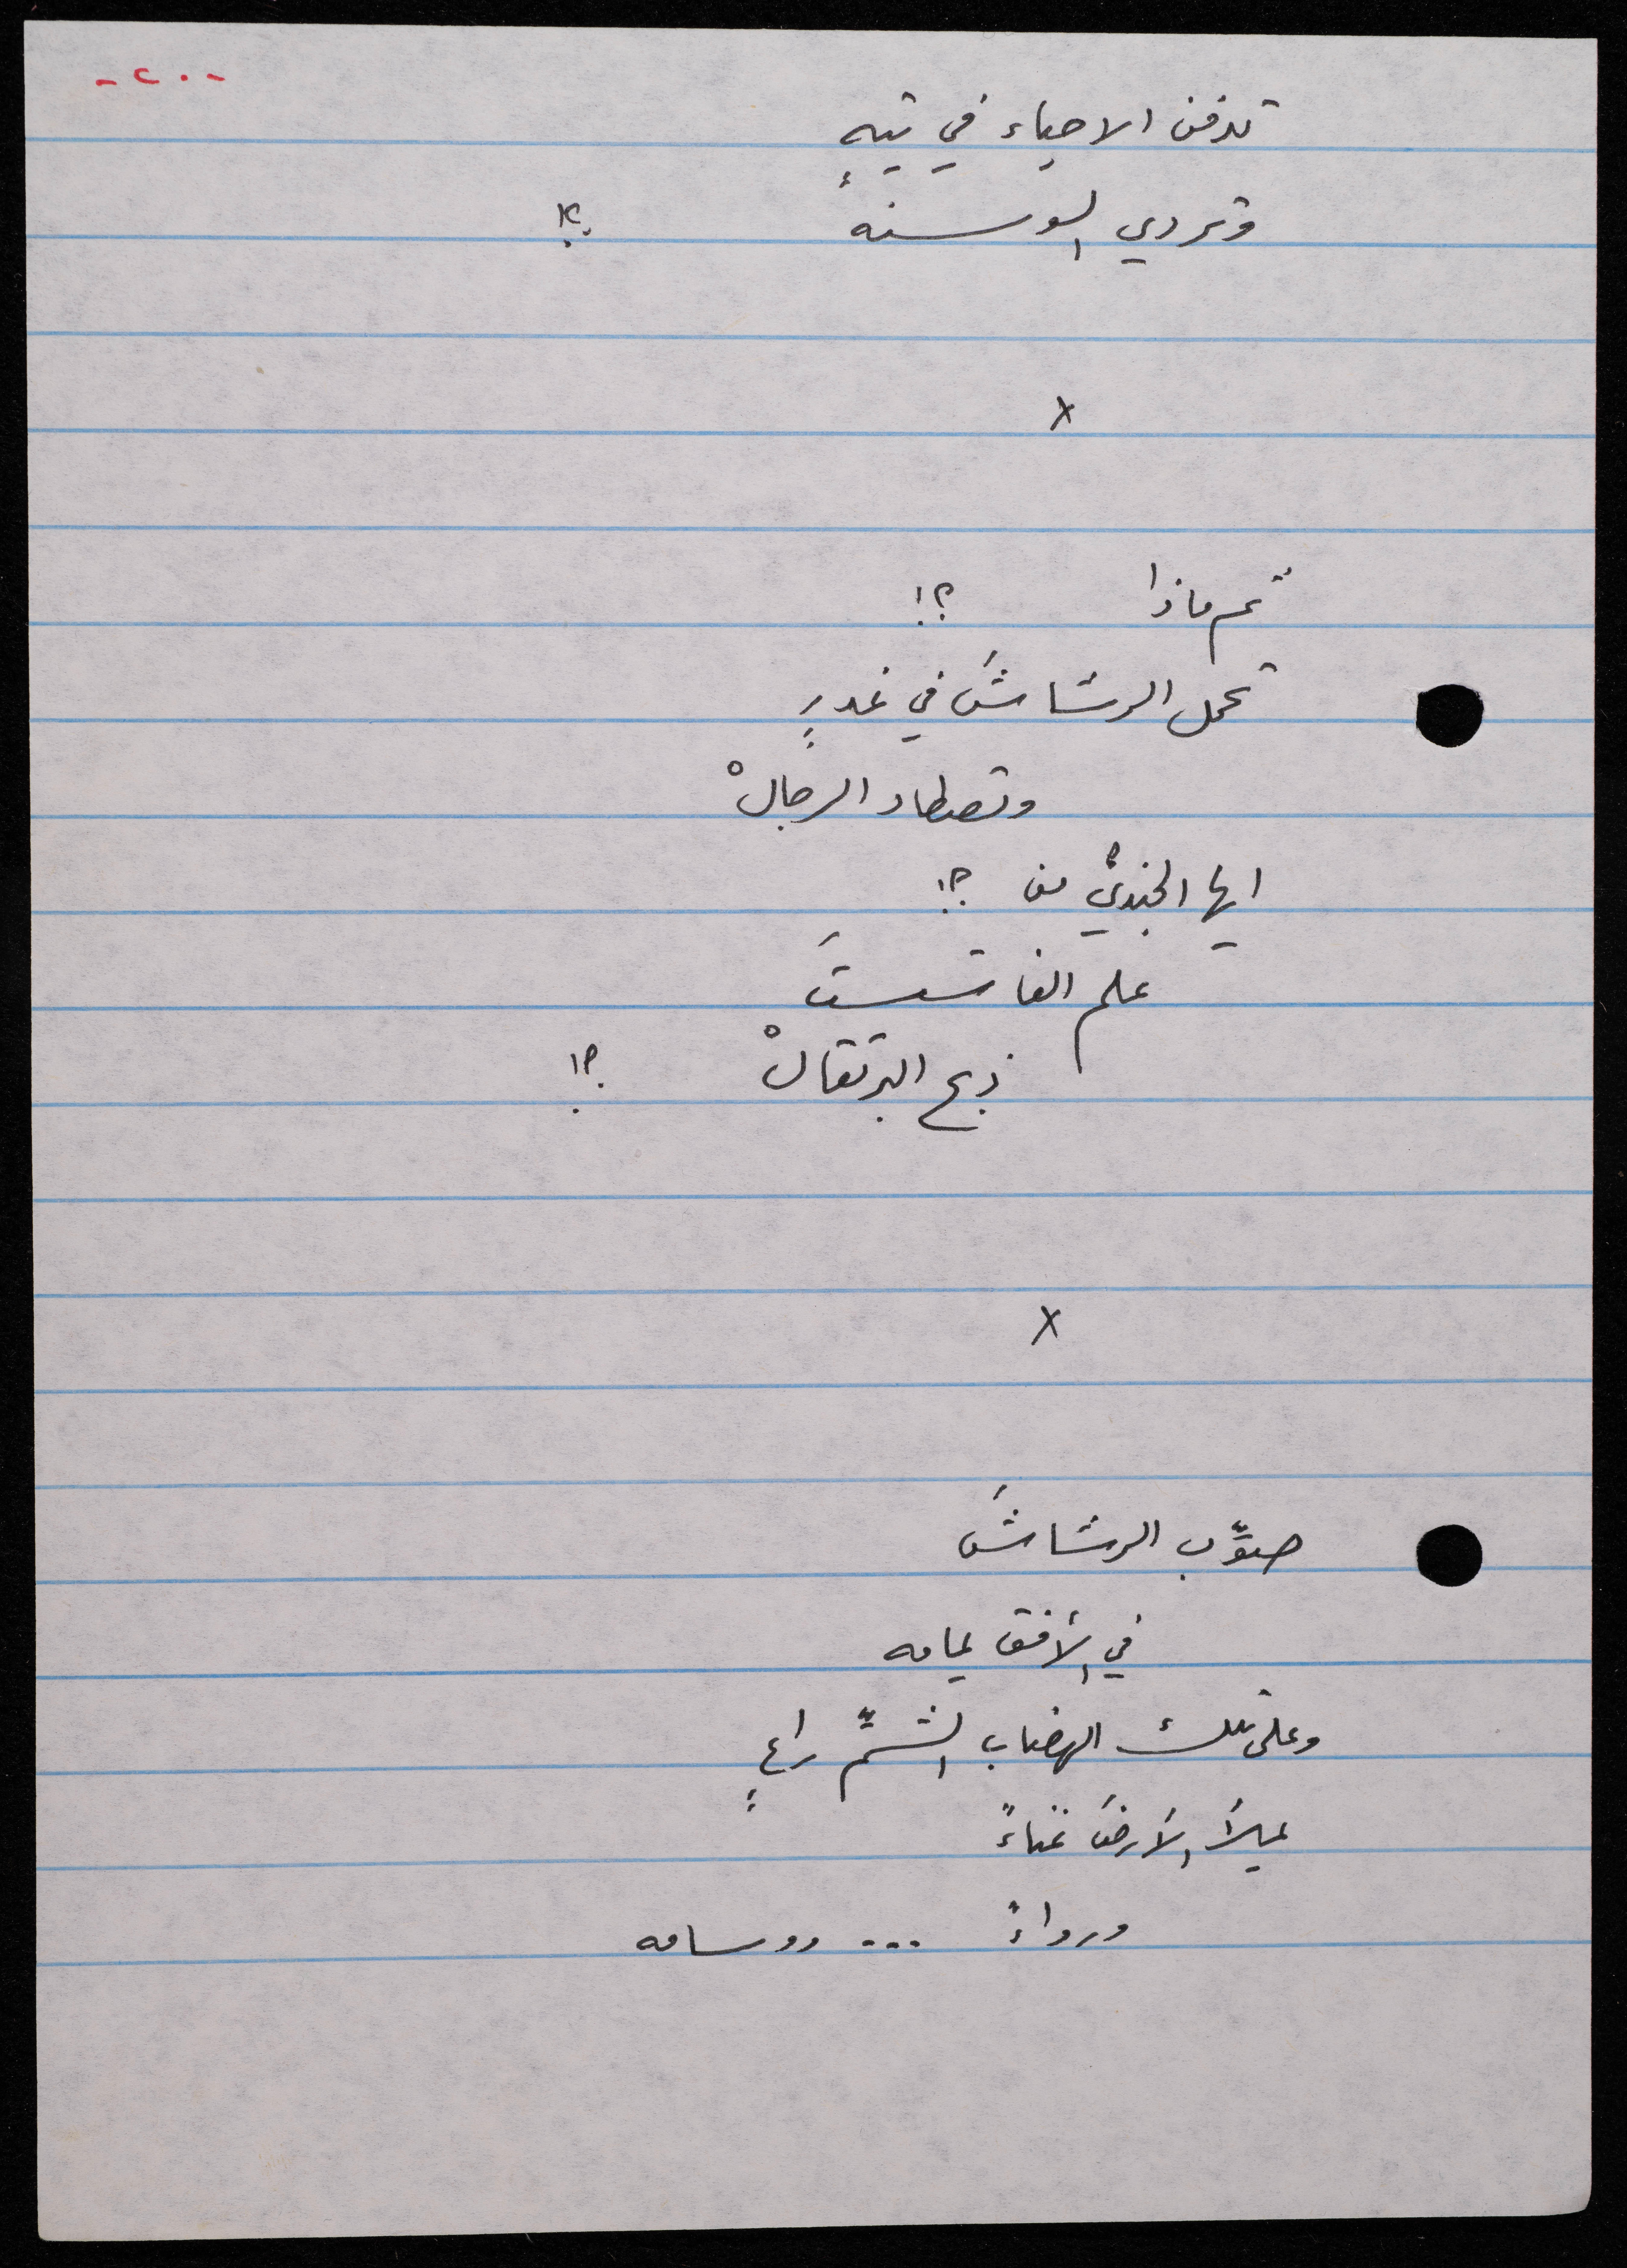 -٢٠-
تدفن الاحياء في تيهٍ
وتردي السوسنه ؟!
x
ثم ماذا ؟!
تحمل الرشاشَ في غدرٍ
وتصطاد الرجالْ
ايها الجنديُّ من ؟!
علم الفاشستَ
ذبح البرتقالْ ؟!
x
صوِّب الرشاشَ
في الأفق يمامه
وعلى تلك الهضاب الشمِّ راعٍ
يملأُ الأرضَ غناءً
ورواءً ... ووسامه